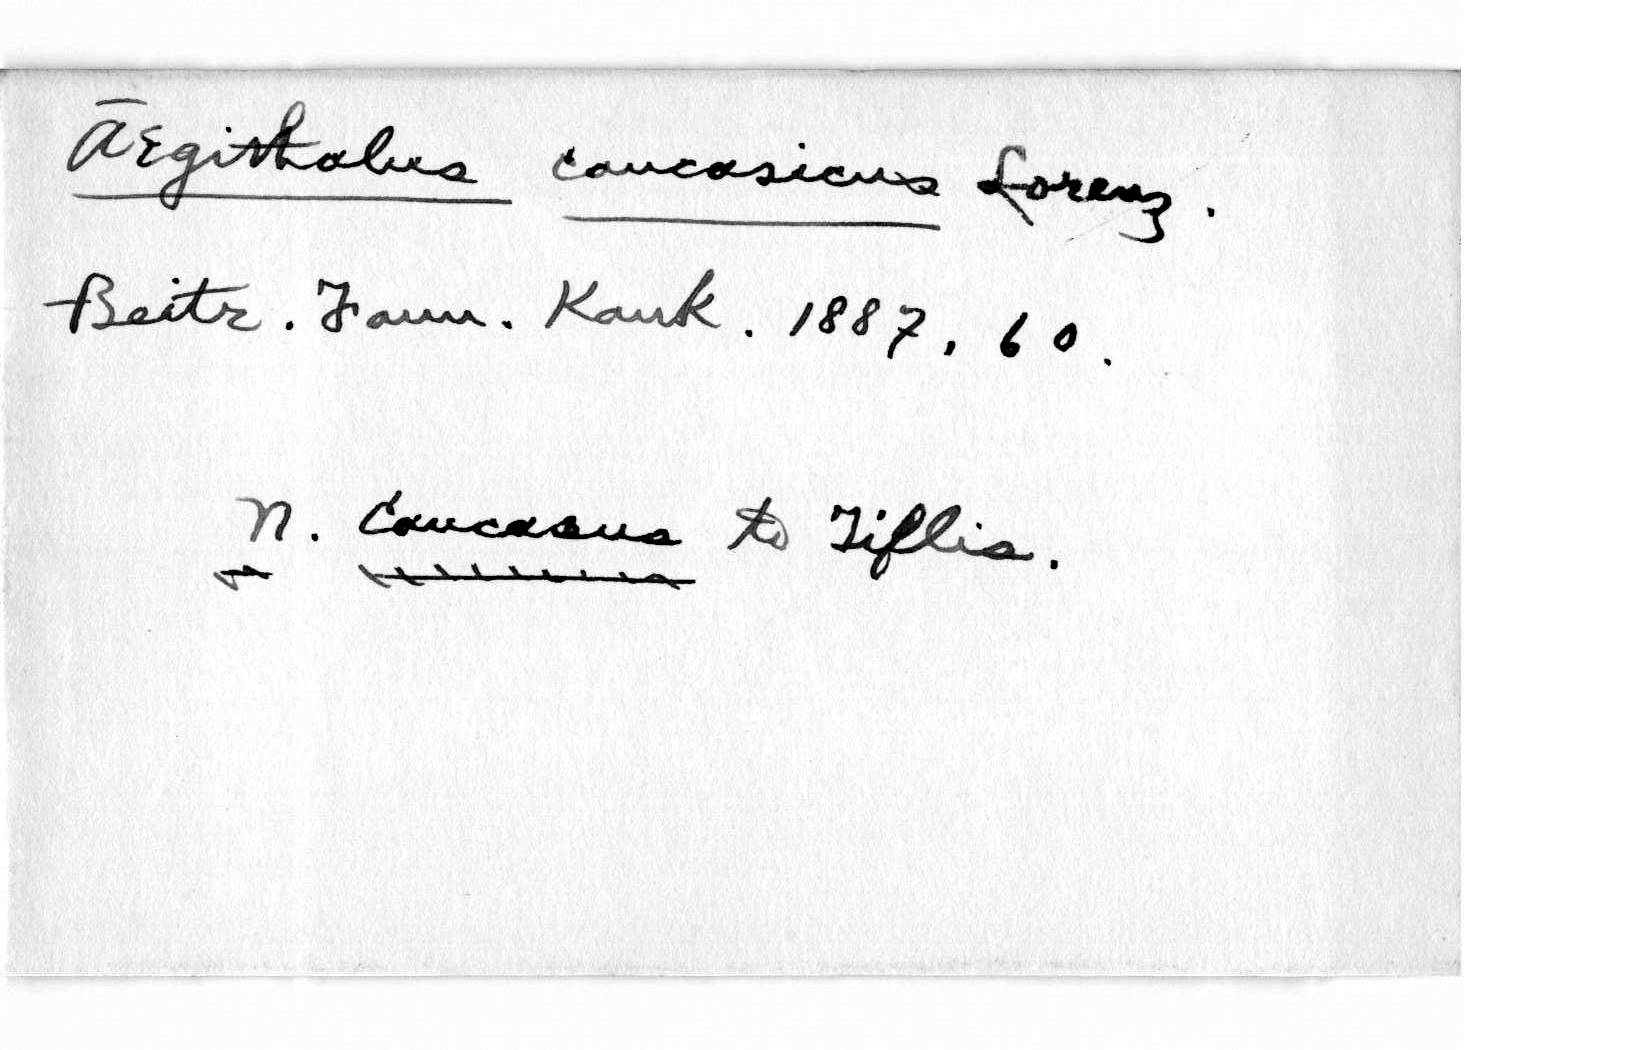 Aegithalus caucasicus Lorenz.
Beitr. Faun. Kauk. 1887, 60.
N. Caucasus to Tiflis.